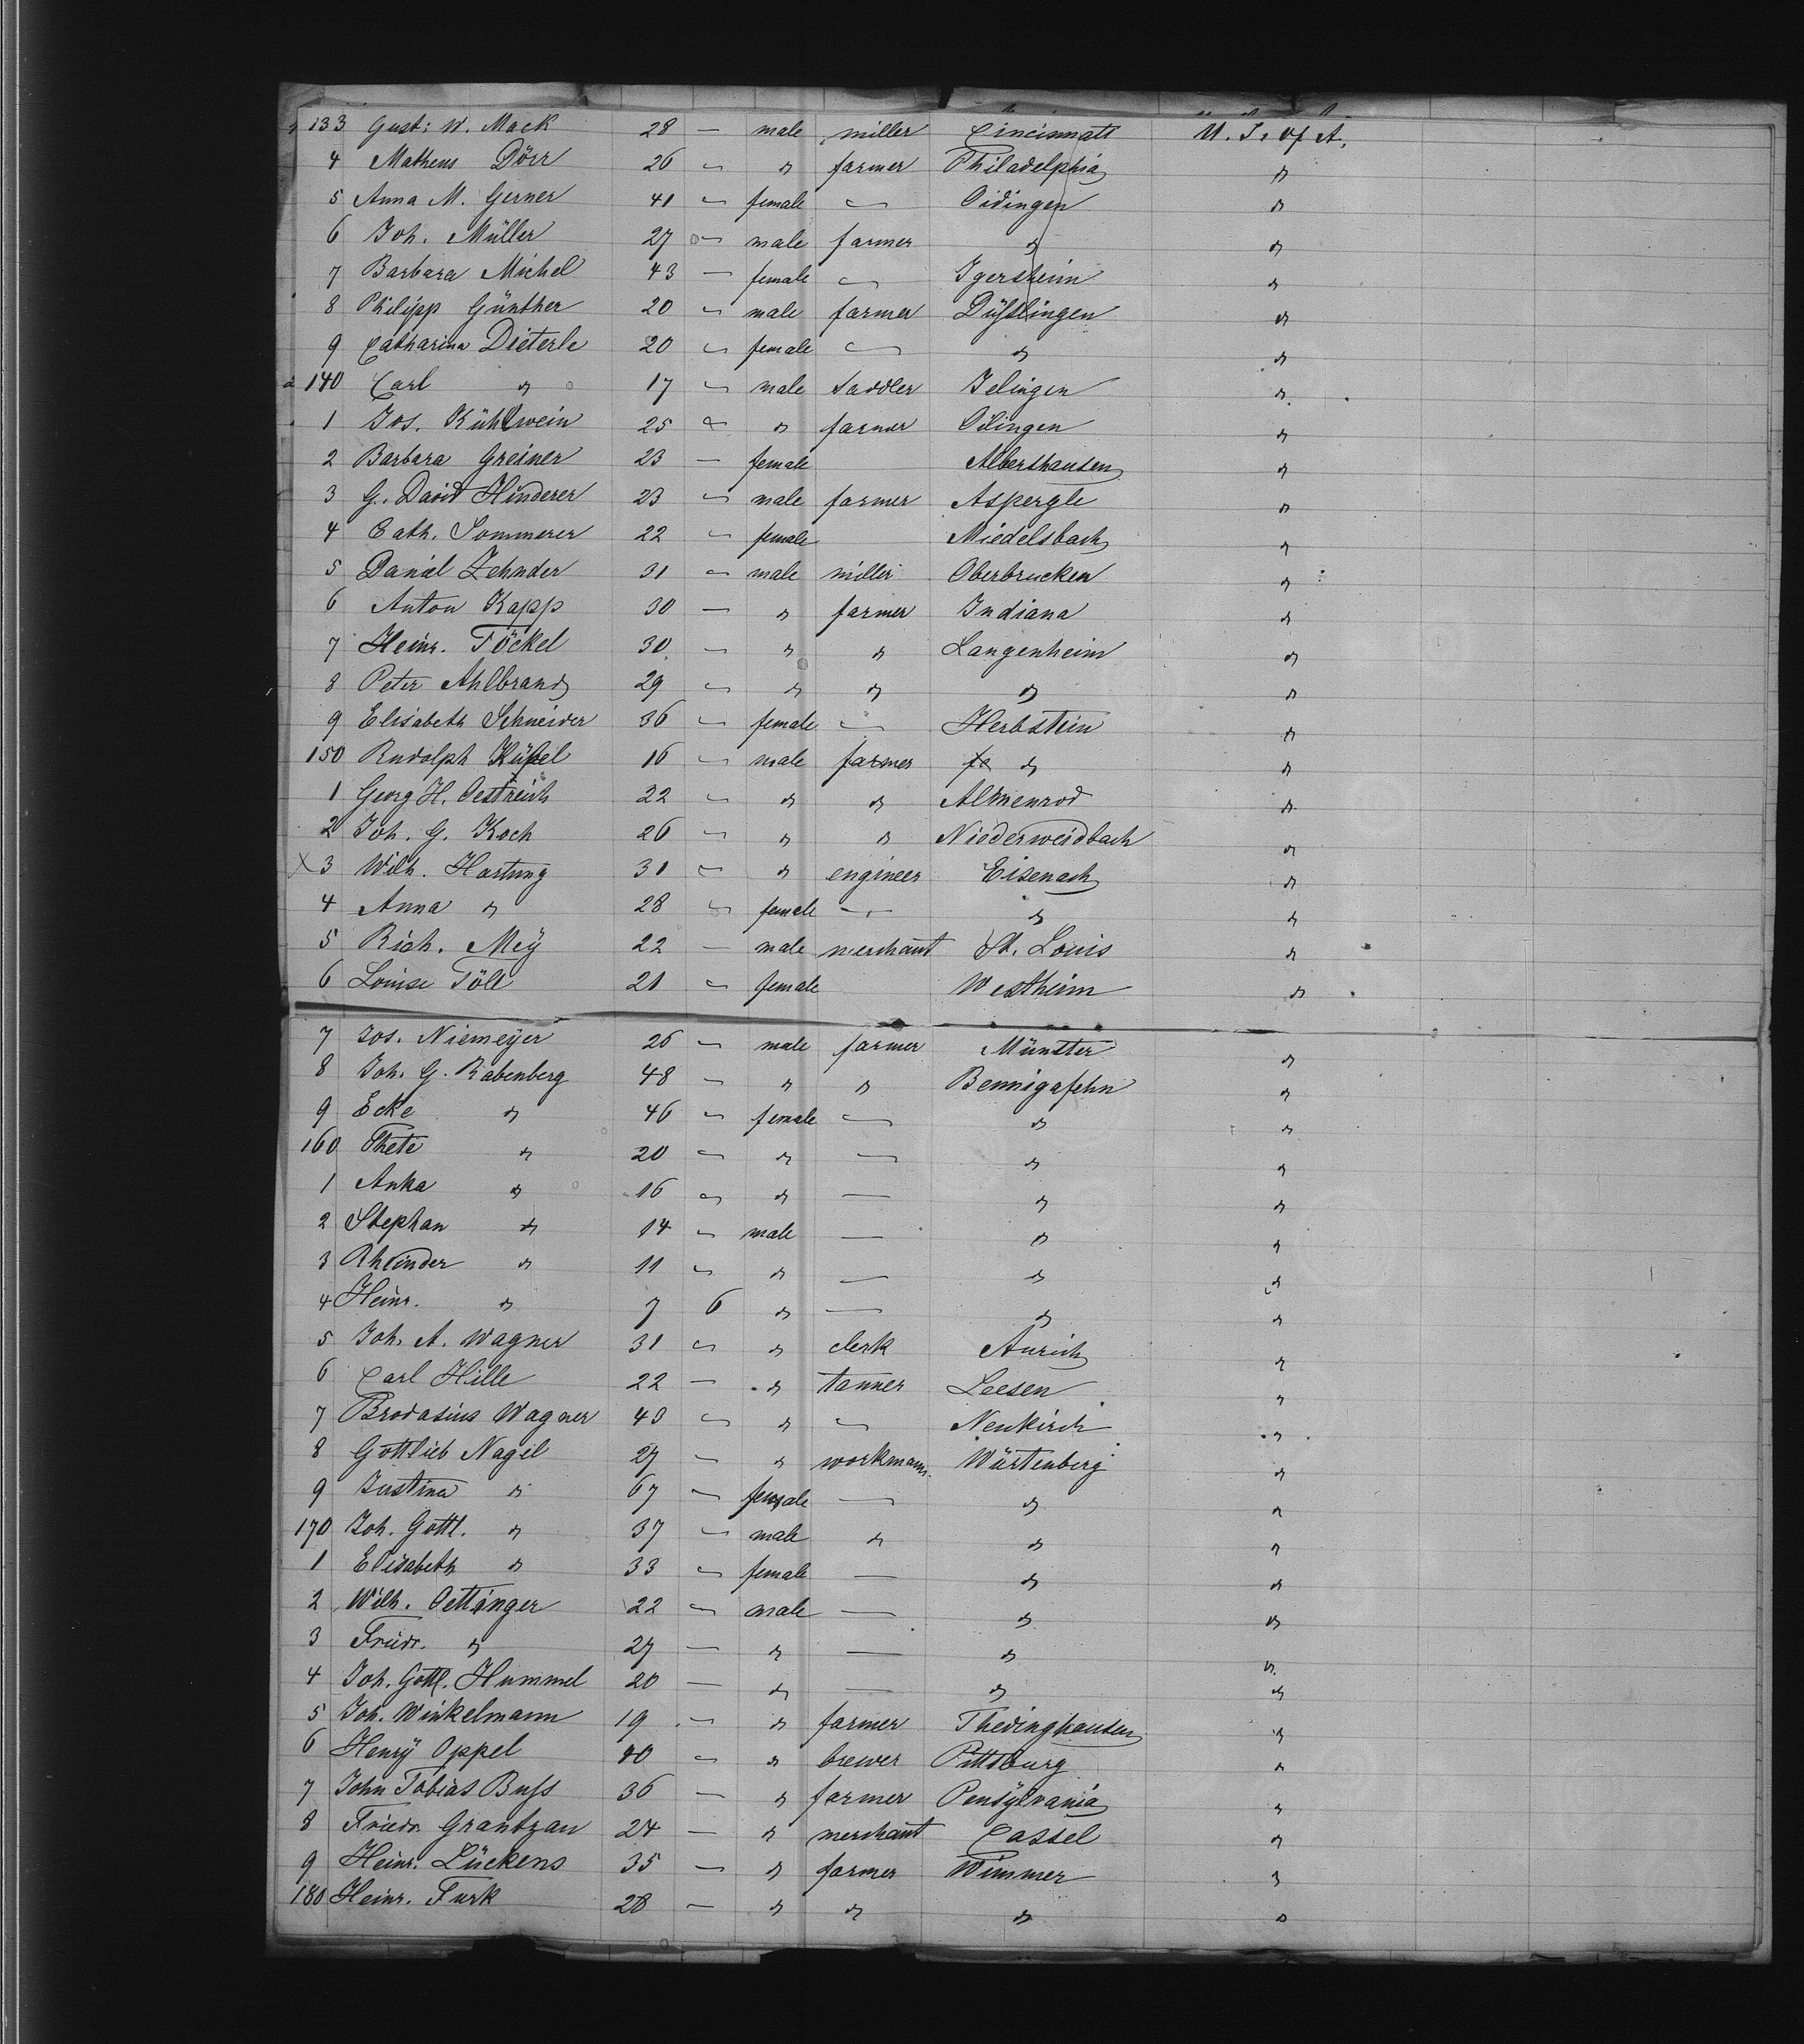 133 Gust: W. Mack 28 — male miller Cincinnati U. S. of A.
4 Matheus Dörr 26 — " farmer Philadelphia "
5 Anna M. Gerner 41 — female — Oidingen "
6 Joh. Müller 27 — male farmer " "
7 Barbara Michel 43 — female — Igersheim "
8 Philipp Günther 20 — male farmer Dußlingen "
9 Catharina Dieterle 20 — female — " "
140 Carl " 17 — male saddler Jelingen "
1 Jos. Kühlwein 25 — " farmer Odingen "
2 Barbara Greiner 23 — female Albershausen "
3 G. David Hinderer 23 — male farmer Aspergle "
4 Cath. Sommerer 22 — female Miedelsbach "
5 Daniel Zehnder 31 — male miller Oberbrucken "
6 Anton Kapp 30 — " farmer Indiana "
7 Heinr. Töckel 30 — " " Langenheim "
8 Peter Ahlbrand 29 — " " " "
9 Elisabeth Schneider 36 — female — Herbstein "
150 Rudolph 16 — male farmer " "
1 Georg H. Oestreich 22 — " " Almenrod "
2 Joh. G. Koch 26 — " " Niederweidbach "
3 Wilh. Hartung 31 — " engineer Eisenach "
4 Anna " 28 — female — " "
5 Rich. Meÿ 22 — male merchant St. Louis "
6 Louise Töll 21 — female Westheim "
7 Jos. Niemeÿer 26 — male farmer Münster "
8 Joh. G. Rabenberg 48 — " " Bennigafehn "
9 Ecke " 46 — female — " "
160 Thete " 20 — " — " "
1 Anka " 16 — " — " "
2 Stephan " 14 — male — " "
3 " 11 — " — " "
4 Heinr. " 7 6 " — " "
5 Joh. A. Wagner 31 — " clerk Aurich "
6 Carl Hille 22 — " tanner Leesen "
7 Brodasius Wagner 43 — " — Neukirch "
8 Gottlieb Nagel 27 — " workmann Würtenberg "
9 Justina " 67 — female — " "
170 Joh. Gottl. " 37 — male " " "
1 Elisabeth " 33 — female — " "
2 Wilh. Oettinger 22 — male — " "
3 Friedr. " 27 — " — " "
4 Joh. Gottl. Hummel 20 — " — " "
5 Joh. Winkelmann 19 — " farmer Thedinghausen "
6 Henrÿ Oppel 40 — " brewer Pittsburg "
7 John Tobias Buss 36 — " farmer Pensÿlvania "
8 Friedr. Grantzau 24 — " merchant Cassel "
9 Heinr. Lückens 35 — " farmer Wimmer "
180 Heinr. Furk 28 — " " " "